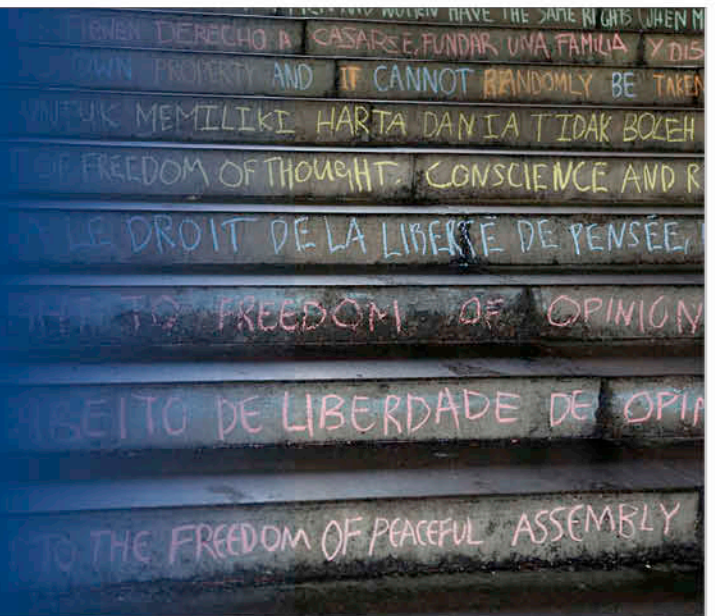 MEN AND WOMEN HAVE THE SAME RIGHTS WHEN M
TIENEN DERECHO A CASARSE, FUNDAR UNA FAMILIA Y DIS
OWN PROPERTY AND IT CANNOT RANDOMLY BE TAKEN
UNTUK MEMILIKI HARTA DAN IA TIDAK BOLEH
OF FREEDOM OF THOUGHT, CONSCIENCE AND R
LE DROIT DE LA LIBERTÉ DE PENSÉE,
TO FREEDOM OF OPINION
DE LIBERDADE DE OPIN
TO THE FREEDOM OF PEACEFUL ASSEMBLY